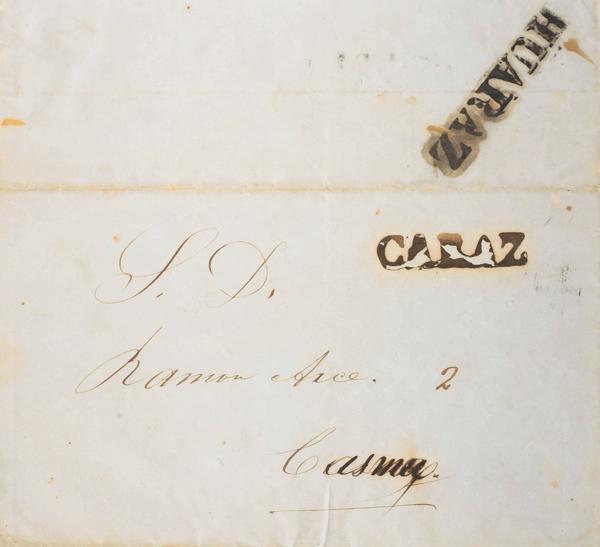 HUARAZ
CARAZ
S. D.
Ramon Arce. 2
Casma.